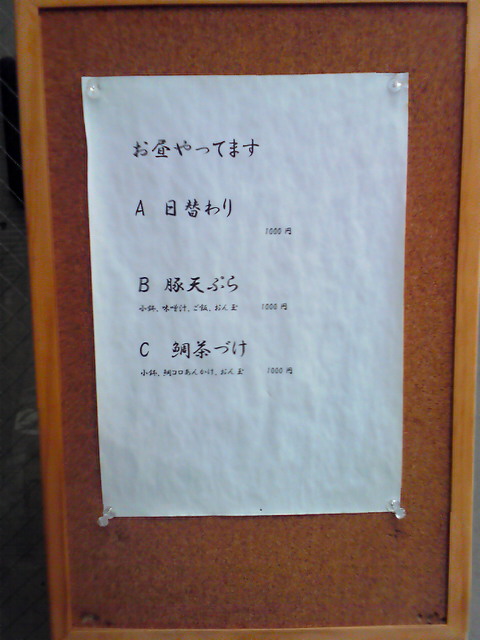 お昼やってます
A 日替わり
1000 円
B 豚天ぷら
小鉢、味噌汁、ご飯、おん玉 1000 円
C 鯛茶づけ
小鉢、鯛コロあんかけ、おん玉 1000 円